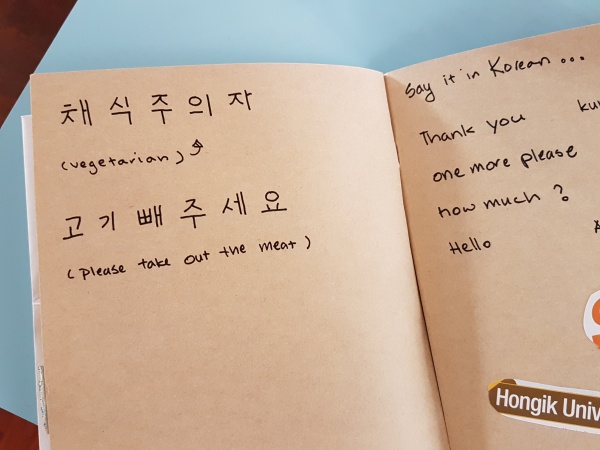 채식주의자
(vegetarian)
고기 빼주세요
(please take out the meat)
Say it in Korean ...
Thank you
one more please
how much ?
Hello
Hongik Univ